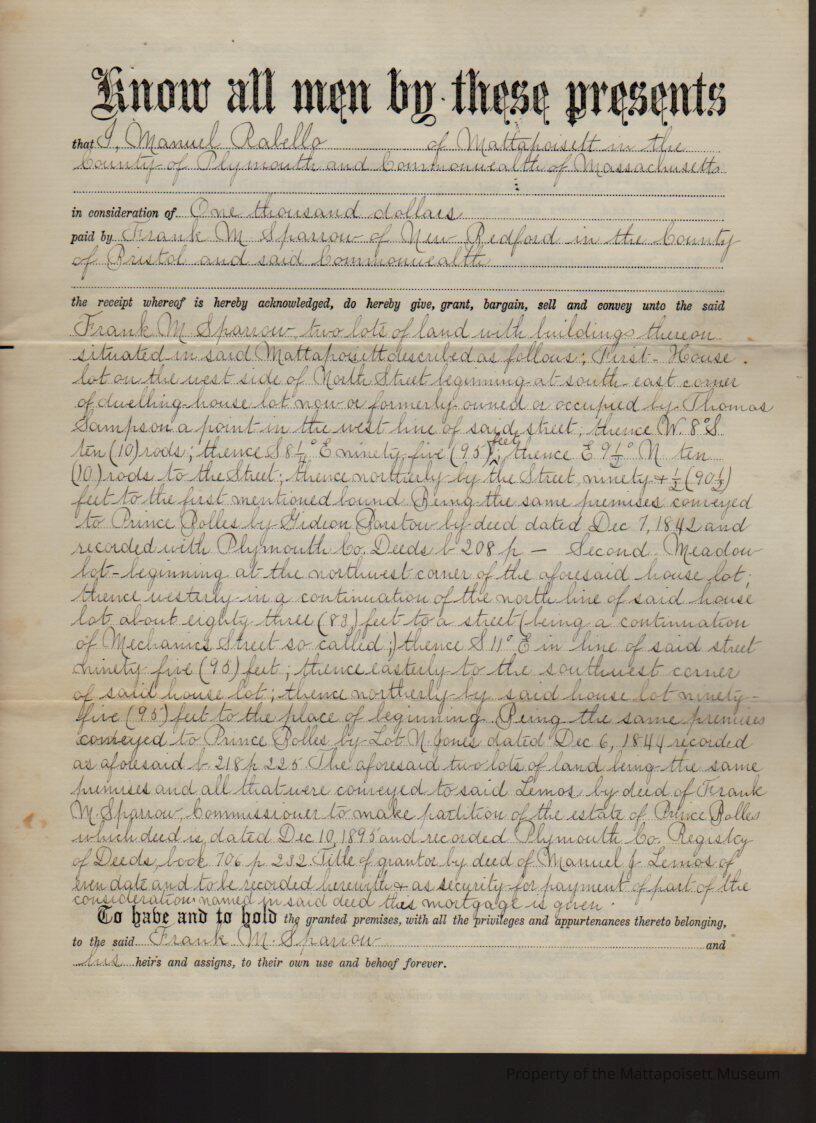 Know all men by these presents
that I, Manuel Rabello of Mattapoisett in the
County of Plymouth and Commonwealth of Massachusetts
in consideration of One thousand dollars
paid by Frank M Sparrow of New Bedford in the County
of Bristol and said Commonwealth
the receipt whereof is hereby acknowledged, do hereby give, grant, bargain, sell and convey unto the said
Frank M Sparrow, two lots of land with buildings thereon
situated in said Mattapoisett described as follows; First - House
lot on the west side of North Street beginning at south-east corner
of dwelling-house lot now or formerly owned or occupied by Thomas
Sampson a point in the west line of said street; thence W. 8° S
ten (10) rods; thence S 8¼° E ninety five (95) feet; thence E 9½° N ten
(10) rods to the Street; thence northerly by the Street ninety & ½ (90½)
feet to the first mentioned bound Being the same premises conveyed
to Prince Bolles by Gideon Barstow by deed dated Dec 7, 1842 and
recorded with Plymouth Co. Deeds b 208 p — Second. Meadow
lot - beginning at the northwest corner of the aforesaid house lot;
thence westerly in a continuation of the north line of said house
lot about eighty three (83) feet to a street (being a continuation
of Mechanics Street so called;) thence S 11° E in line of said street
ninety five (95) feet; thence easterly to the southwest corner
of said house lot; thence northerly by said house lot ninety-
five (95) feet to the place of beginning. Being the same premises
conveyed to Prince Bolles by Lot N. Jones dated Dec 6, 1844 recorded
as aforesaid b 218 p 225 The aforesaid two lots of land being the same
premises and all that were conveyed to said Lemos by deed of Frank
M. Sparrow, Commissioner to make partition of the estate of Prince Bolles
which deed is dated Dec 10, 1895 and recorded Plymouth Co. Registry
of Deeds, book 706 p 232. Title of grantor by deed of Manuel J. Lemos of
even date and to be recorded herewith & as security for payment of part of the
consideration named in said deed this mortgage is given.
To have and to hold the granted premises, with all the privileges and appurtenances thereto belonging,
to the said Frank M. Sparrow and
his heirs and assigns, to their own use and behoof forever.
Property of the Mattapoisett Museum